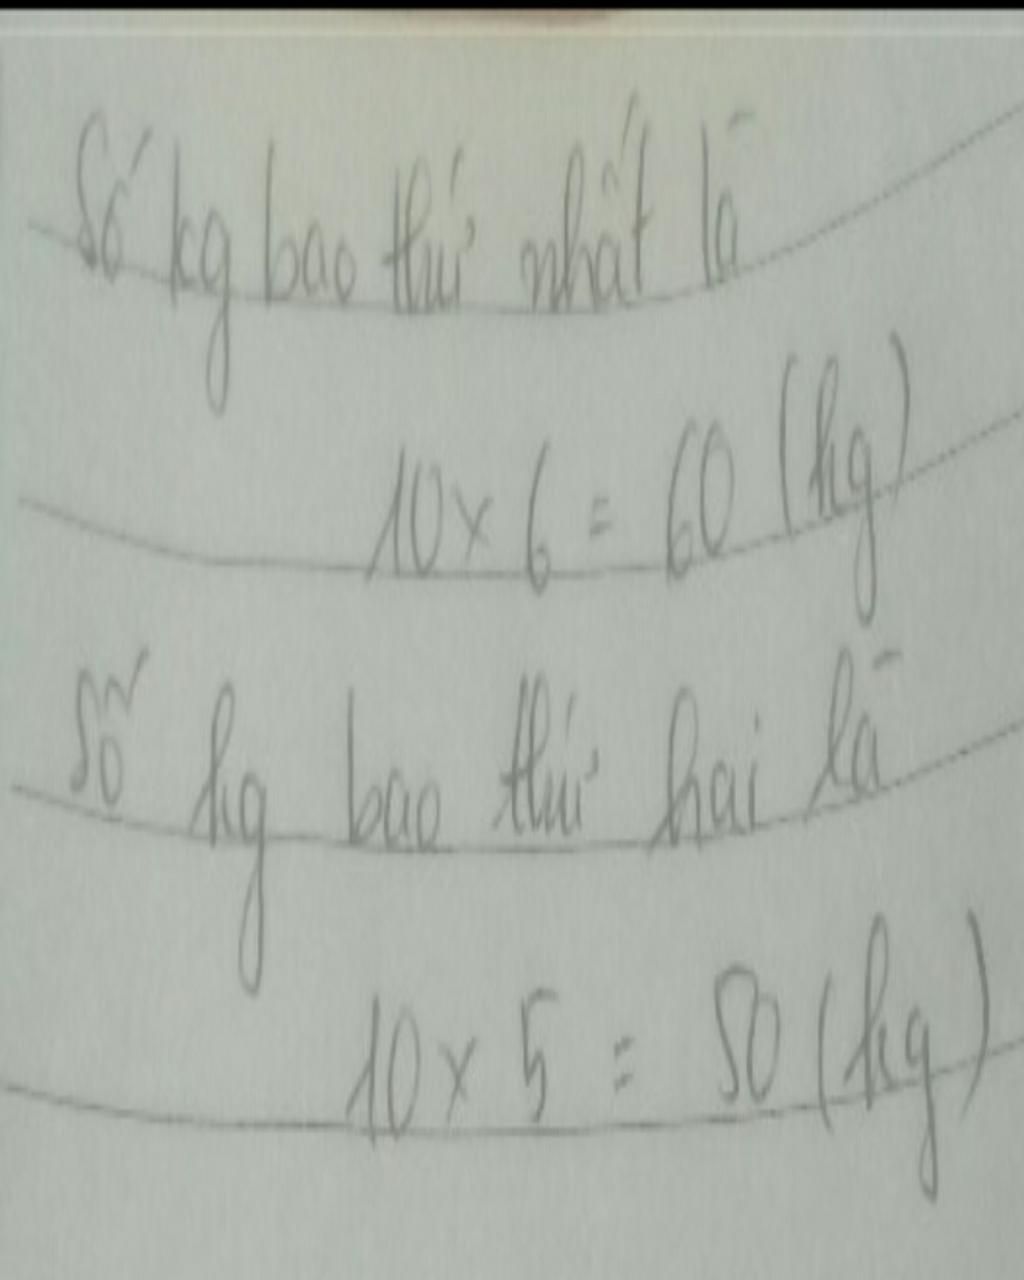 Số kg bao thứ nhất là
10 x 6 = 60 (kg)
Số kg bao thứ hai là
10 x 5 = 50 (kg)